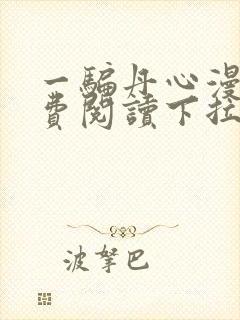 一騙丹心漫
費閱讀下拉
波拏巴